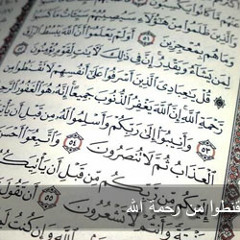 وَٱلَّذِينَ ظَلَمُوا۟ مِنْ هَـٰٓؤُلَآءِ سَيُصِيبُهُمْ سَيِّـَٔاتُ مَا
وَمَا هُم بِمُعْجِزِينَ ٥١ أَوَلَمْ يَعْلَمُوٓا۟ أَنَّ ٱللَّهَ
يَشَآءُ وَيَقْدِرُ إِنَّ فِى ذَٰلِكَ لَـَٔايَـٰتٍ لِّقَوْمٍ يُؤْمِنُونَ
قُلْ يَـٰعِبَادِىَ ٱلَّذِينَ أَسْرَفُوا۟ عَلَىٰٓ أَنفُسِهِمْ لَا تَقْنَطُوا۟ مِن
رَّحْمَةِ ٱللَّهِ إِنَّ ٱللَّهَ يَغْفِرُ ٱلذُّنُوبَ جَمِيعًا إِنَّهُۥ هُوَ ٱلْغَفُورُ ٱلرَّحِيمُ
٥٣ وَأَنِيبُوٓا۟ إِلَىٰ رَبِّكُمْ وَأَسْلِمُوا۟ لَهُۥ مِن قَبْلِ أَن يَأْتِيَكُمُ
ٱلْعَذَابُ ثُمَّ لَا تُنصَرُونَ ٥٤ وَٱتَّبِعُوٓا۟ أَحْسَنَ
رَّبِّكُم مِّن قَبْلِ أَن يَأْتِيَكُمُ
قنطوا من رحمة الله
لَا تَشْعُرُونَ ٥٥ أَن تَقُولَ